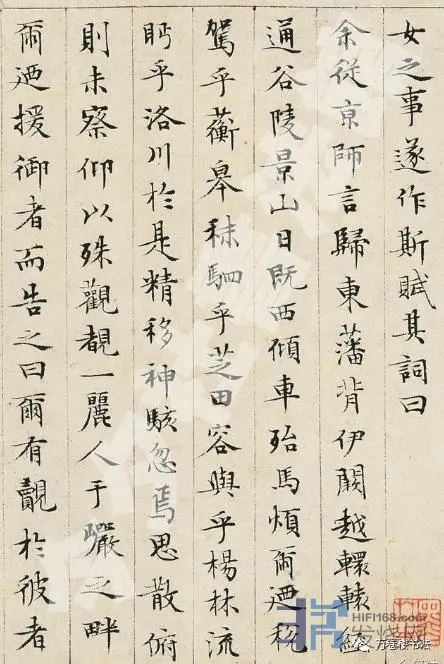 女之事遂作斯賦其詞曰
余從京師言歸東藩背伊闕越轘轅經
通谷陵景山日既西傾車殆馬煩爾迺稅
駕乎蘅皋秣駟乎芝田容與乎楊林流
眄乎洛川於是精移神駭忽焉思散俯
則未察仰以殊觀覩一麗人于巖之畔
爾迺援御者而告之曰爾有覿於彼者
HIFI168.com
发烧网